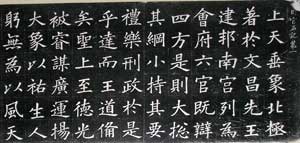 上天垂象北極
著於文昌先王
建邦南宮列為
會府六官既辯
四方是則大揔
其綱小持其要
禮樂刑政於是
乎達而王道備
矣聖上至德光
被睿謀廣運揚
大象以祐生人
躬無為以風天